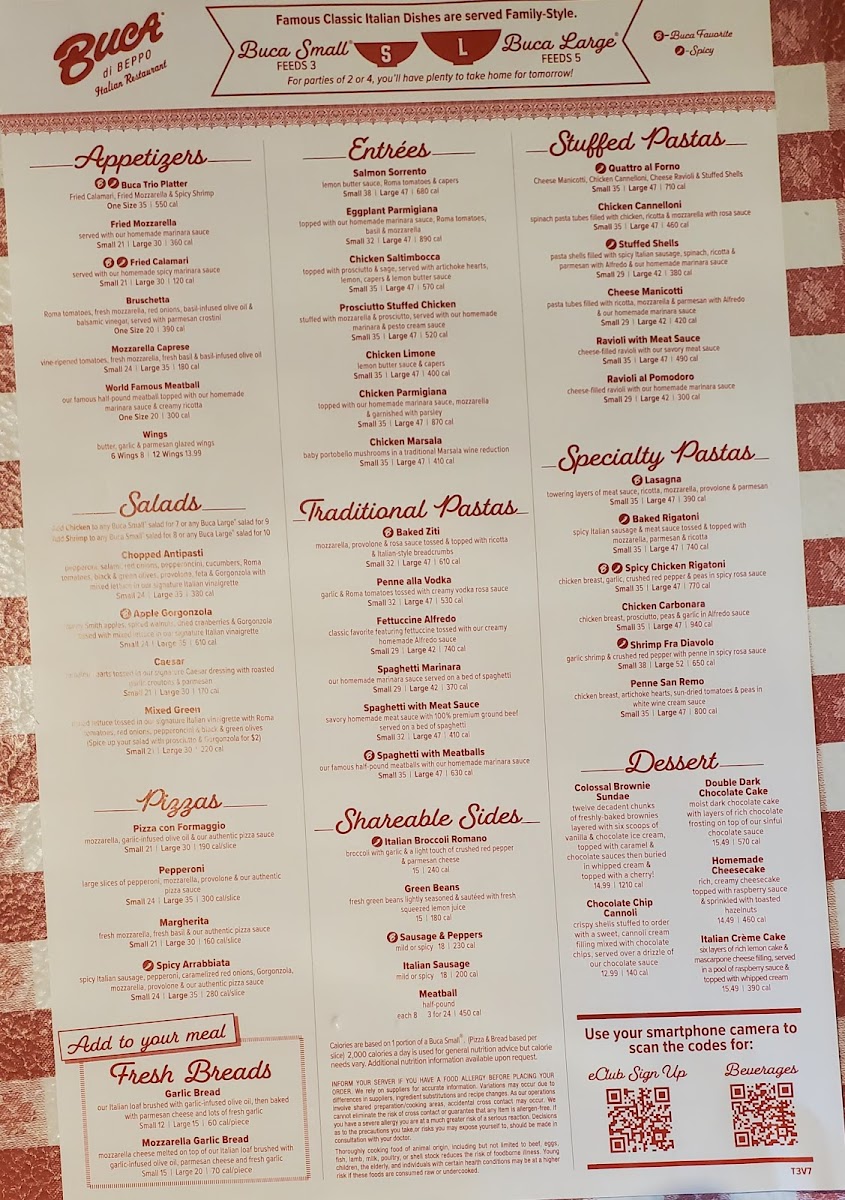 BUCA®
di BEPPO
Italian Restaurant
Famous Classic Italian Dishes are served Family-Style.
Buca Small® FEEDS 3
S
L
Buca Large® FEEDS 5
For parties of 2 or 4, you'll have plenty to take home for tomorrow!
B-Buca Favorite
-Spicy
Appetizers
Buca Trio Platter
Fried Calamari, Fried Mozzarella & Spicy Shrimp
One Size 35 | 550 cal
Fried Mozzarella
served with our homemade marinara sauce
Small 21 | Large 30 | 360 cal
Fried Calamari
served with our homemade spicy marinara sauce
Small 21 | Large 30 | 120 cal
Bruschetta
Roma tomatoes, fresh mozzarella, red onions, basil-infused olive oil &
balsamic vinegar, served with parmesan crostini
One Size 20 | 390 cal
Mozzarella Caprese
vine-ripened tomatoes, fresh mozzarella, fresh basil & basil-infused olive oil
Small 24 | Large 35 | 180 cal
World Famous Meatball
our famous half-pound meatball topped with our homemade
marinara sauce & creamy ricotta
One Size 20 | 300 cal
Wings
butter, garlic & parmesan glazed wings
6 Wings 8 | 12 Wings 13.99
Salads
Add Chicken to any Buca Small® salad for 7 or any Buca Large® salad for 9
Add Shrimp to any Buca Small® salad for 8 or any Buca Large® salad for 10
Chopped Antipasti
pepperoni, salami, red onions, pepperoncini, cucumbers, Roma
tomatoes, black & green olives, provolone, feta & Gorgonzola with
mixed lettuce in our signature Italian vinaigrette
Small 24 | Large 35 | 380 cal
Apple Gorgonzola
Smith apples, spiced walnuts, dried cranberries & Gorgonzola
tossed with mixed lettuce in our signature Italian vinaigrette
Small 24 | Large 35 | 610 cal
Caesar
hearts tossed in our signature Caesar dressing with roasted
garlic croutons & parmesan
Small 21 | Large 30 | 170 cal
Mixed Green
mixed lettuce tossed in our signature Italian vinaigrette with Roma
tomatoes, red onions, pepperoncini & black & green olives
(Spice up your salad with prosciutto & Gorgonzola for $2)
Small 21 | Large 30 | 220 cal
Pizzas
Pizza con Formaggio
mozzarella, garlic-infused olive oil & our authentic pizza sauce
Small 21 | Large 30 | 190 cal/slice
Pepperoni
large slices of pepperoni, mozzarella, provolone & our authentic
pizza sauce
Small 24 | Large 35 | 300 cal/slice
Margherita
fresh mozzarella, fresh basil & our authentic pizza sauce
Small 21 | Large 30 | 160 cal/slice
Spicy Arrabbiata
spicy Italian sausage, pepperoni, caramelized red onions, Gorgonzola,
mozzarella, provolone & our authentic pizza sauce
Small 24 | Large 35 | 280 cal/slice
Add to your meal
Fresh Breads
Garlic Bread
our Italian loaf brushed with garlic-infused olive oil, then baked
with parmesan cheese and lots of fresh garlic
Small 12 | Large 15 | 60 cal/piece
Mozzarella Garlic Bread
mozzarella cheese melted on top of our Italian loaf brushed with
garlic-infused olive oil, parmesan cheese and fresh garlic
Small 15 | Large 20 | 70 cal/piece
Entrées
Salmon Sorrento
lemon butter sauce, Roma tomatoes & capers
Small 38 | Large 47 | 680 cal
Eggplant Parmigiana
topped with our homemade marinara sauce, Roma tomatoes,
basil & mozzarella
Small 32 | Large 47 | 890 cal
Chicken Saltimbocca
topped with prosciutto & sage, served with artichoke hearts,
lemon, capers & lemon butter sauce
Small 35 | Large 47 | 570 cal
Prosciutto Stuffed Chicken
stuffed with mozzarella & prosciutto, served with our homemade
marinara & pesto cream sauce
Small 35 | Large 47 | 520 cal
Chicken Limone
lemon butter sauce & capers
Small 35 | Large 47 | 400 cal
Chicken Parmigiana
topped with our homemade marinara sauce, mozzarella
& garnished with parsley
Small 35 | Large 47 | 870 cal
Chicken Marsala
baby portobello mushrooms in a traditional Marsala wine reduction
Small 35 | Large 47 | 410 cal
Traditional Pastas
Baked Ziti
mozzarella, provolone & rosa sauce tossed & topped with ricotta
& Italian-style breadcrumbs
Small 32 | Large 47 | 610 cal
Penne alla Vodka
garlic & Roma tomatoes tossed with creamy vodka rosa sauce
Small 32 | Large 47 | 530 cal
Fettuccine Alfredo
classic favorite featuring fettuccine tossed with our creamy
homemade Alfredo sauce
Small 29 | Large 42 | 740 cal
Spaghetti Marinara
our homemade marinara sauce served on a bed of spaghetti
Small 29 | Large 42 | 370 cal
Spaghetti with Meat Sauce
savory homemade meat sauce with 100% premium ground beef
served on a bed of spaghetti
Small 32 | Large 47 | 410 cal
Spaghetti with Meatballs
our famous half-pound meatballs with our homemade marinara sauce
Small 35 | Large 47 | 630 cal
Shareable Sides
Italian Broccoli Romano
broccoli with garlic & a light touch of crushed red pepper
& parmesan cheese
15 | 240 cal
Green Beans
fresh green beans lightly seasoned & sautéed with fresh
squeezed lemon juice
15 | 180 cal
Sausage & Peppers
mild or spicy 18 | 230 cal
Italian Sausage
mild or spicy 18 | 200 cal
Meatball
half-pound
each 8 3 for 24 | 450 cal
Calories are based on 1 portion of a Buca Small®. (Pizza & Bread based per
slice) 2,000 calories a day is used for general nutrition advice but calorie
needs vary. Additional nutrition information available upon request.
INFORM YOUR SERVER IF YOU HAVE A FOOD ALLERGY BEFORE PLACING YOUR
ORDER. We rely on suppliers for accurate information. Variations may occur due to
differences in suppliers, ingredient substitutions and recipe changes. As our operations
involve shared preparation/cooking areas, accidental cross contact may occur. We
cannot eliminate the risk of cross contact or guarantee that any item is allergen-free. If
you have a severe allergy you are at a much greater risk of a serious reaction. Decisions
as to the precautions you take,or risks you may expose yourself to, should be made in
consultation with your doctor.
Thoroughly cooking food of animal origin, including but not limited to beef, eggs,
fish, lamb, milk, poultry, or shell stock reduces the risk of foodborne illness. Young
children, the elderly, and individuals with certain health conditions may be at a higher
risk if these foods are consumed raw or undercooked.
Stuffed Pastas
Quattro al Forno
Cheese Manicotti, Chicken Cannelloni, Cheese Ravioli & Stuffed Shells
Small 35 | Large 47 | 710 cal
Chicken Cannelloni
spinach pasta tubes filled with chicken, ricotta & mozzarella with rosa sauce
Small 35 | Large 47 | 460 cal
Stuffed Shells
pasta shells filled with spicy Italian sausage, spinach, ricotta &
parmesan with Alfredo & our homemade marinara sauce
Small 29 | Large 42 | 380 cal
Cheese Manicotti
pasta tubes filled with ricotta, mozzarella & parmesan with Alfredo
& our homemade marinara sauce
Small 29 | Large 42 | 420 cal
Ravioli with Meat Sauce
cheese-filled ravioli with our savory meat sauce
Small 35 | Large 47 | 490 cal
Ravioli al Pomodoro
cheese-filled ravioli with our homemade marinara sauce
Small 29 | Large 42 | 300 cal
Specialty Pastas
Lasagna
towering layers of meat sauce, ricotta, mozzarella, provolone & parmesan
Small 35 | Large 47 | 390 cal
Baked Rigatoni
spicy Italian sausage & meat sauce tossed & topped with
mozzarella, parmesan & ricotta
Small 35 | Large 47 | 740 cal
Spicy Chicken Rigatoni
chicken breast, garlic, crushed red pepper & peas in spicy rosa sauce
Small 35 | Large 47 | 770 cal
Chicken Carbonara
chicken breast, prosciutto, peas & garlic in Alfredo sauce
Small 35 | Large 47 | 940 cal
Shrimp Fra Diavolo
garlic shrimp & crushed red pepper with penne in spicy rosa sauce
Small 38 | Large 52 | 650 cal
Penne San Remo
chicken breast, artichoke hearts, sun-dried tomatoes & peas in
white wine cream sauce
Small 35 | Large 47 | 800 cal
Dessert
Colossal Brownie
Sundae
twelve decadent chunks
of freshly-baked brownies
layered with six scoops of
vanilla & chocolate ice cream,
topped with caramel &
chocolate sauces then buried
in whipped cream &
topped with a cherry!
14.99 | 1210 cal
Chocolate Chip
Cannoli
crispy shells stuffed to order
with a sweet, cannoli cream
filling mixed with chocolate
chips, served over a drizzle of
our chocolate sauce
12.99 | 140 cal
Double Dark
Chocolate Cake
moist dark chocolate cake
with layers of rich chocolate
frosting on top of our sinful
chocolate sauce
15.49 | 570 cal
Homemade
Cheesecake
rich, creamy cheesecake
topped with raspberry sauce
& sprinkled with toasted
hazelnuts
14.49 | 460 cal
Italian Crème Cake
six layers of rich lemon cake &
mascarpone cheese filling, served
in a pool of raspberry sauce &
topped with whipped cream
15.49 | 390 cal
Use your smartphone camera to
scan the codes for:
eClub Sign Up
Beverages
T3V7